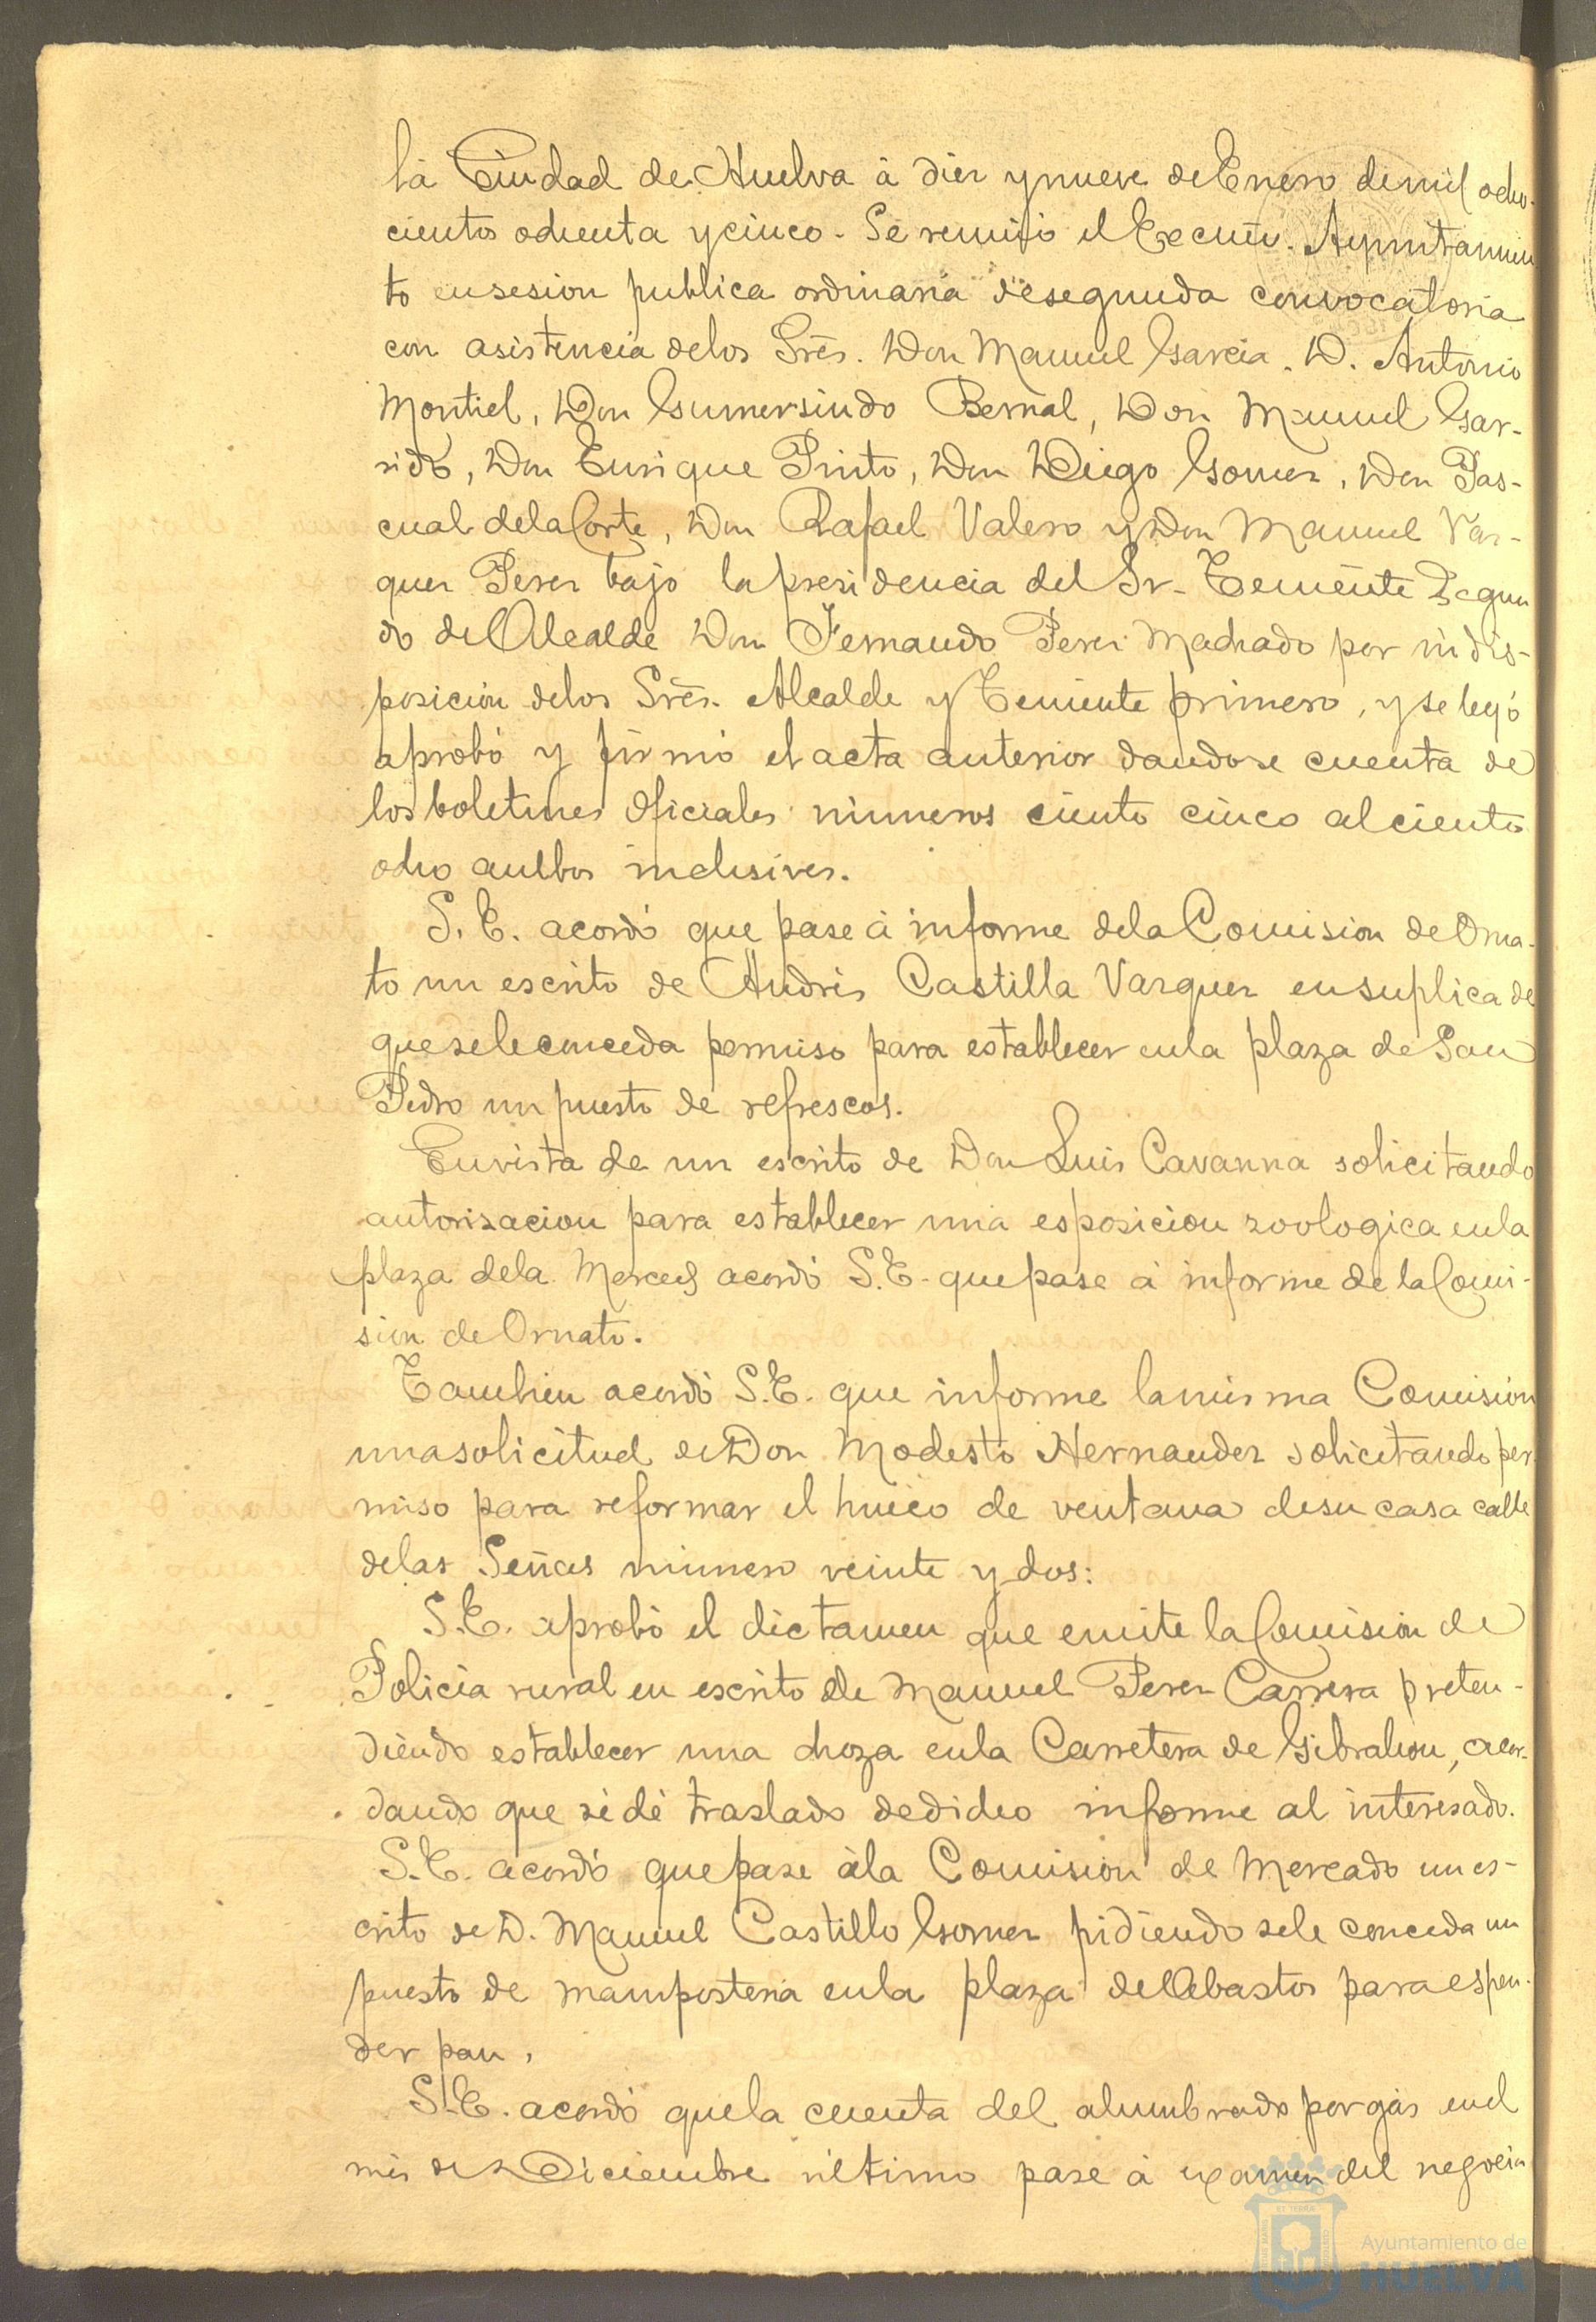 la Ciudad de Huelva á diez y nueve de Enero de mil ocho-
cientos ochenta y cinco. Se reunió el Excmo. Ayuntamien
to en sesion publica ordinaria de segunda convocatoria
con asistencia de los Sres. Don Manuel Garcia, D. Antonio
Montiel, Don Gumersindo Bernal, Don Manuel Gar-
rido, Don Enrique Pinto, Don Diego Gomez, Don Pas-
cual de la Corte, Don Rafael Valero y Don Manuel Vaz-
quez Perez bajo la presidencia del Sr. Teniente Segun
do de Alcalde Don Fernando Perez Machado por indis-
posicion de los Sres. Alcalde y Teniente primero, y se leyó
aprobó y firmó el acta anterior dandose cuenta de
los boletines oficiales números ciento cinco al ciento
ocho ambos inclusives.
S. E. acordó que pase á informe de la Comision de Orna-
to un escrito de Andrés Castilla Vazquez en suplica de
que se le conceda permiso para establecer en la plaza de San
Pedro un puesto de refrescos.
En vista de un escrito de Don Luis Cavanna solicitando
autorizacion para establecer una esposicion zoologica en la
plaza de la Merced acordó S. E. que pase á informe de la Comi-
sion de Ornato.
Tambien acordó S. E. que informe la misma Comision
una solicitud de Don Modesto Hernandez solicitando per
miso para reformar el hueco de ventana de su casa calle
de las Señas número veinte y dos:
S. E. aprobó el dictamen que emite la Comision de
Policia rural en escrito de Manuel Perez Carrera preten-
diendo establecer una choza en la Carretera de Gibraleon, acor-
dando que se dé traslado de dicho informe al interesado.
S. E. acordó que pase á la Comision de Mercado un es-
crito de D. Manuel Castillo Gomez pidiendo se le conceda un
puesto de mamposteria en la plaza de Abastos para espen-
der pan.
S. E. acordó que la cuenta del alumbrado por gas en el
mes de Diciembre último pase á examen del negocia
Ayuntamiento de
HUELVA